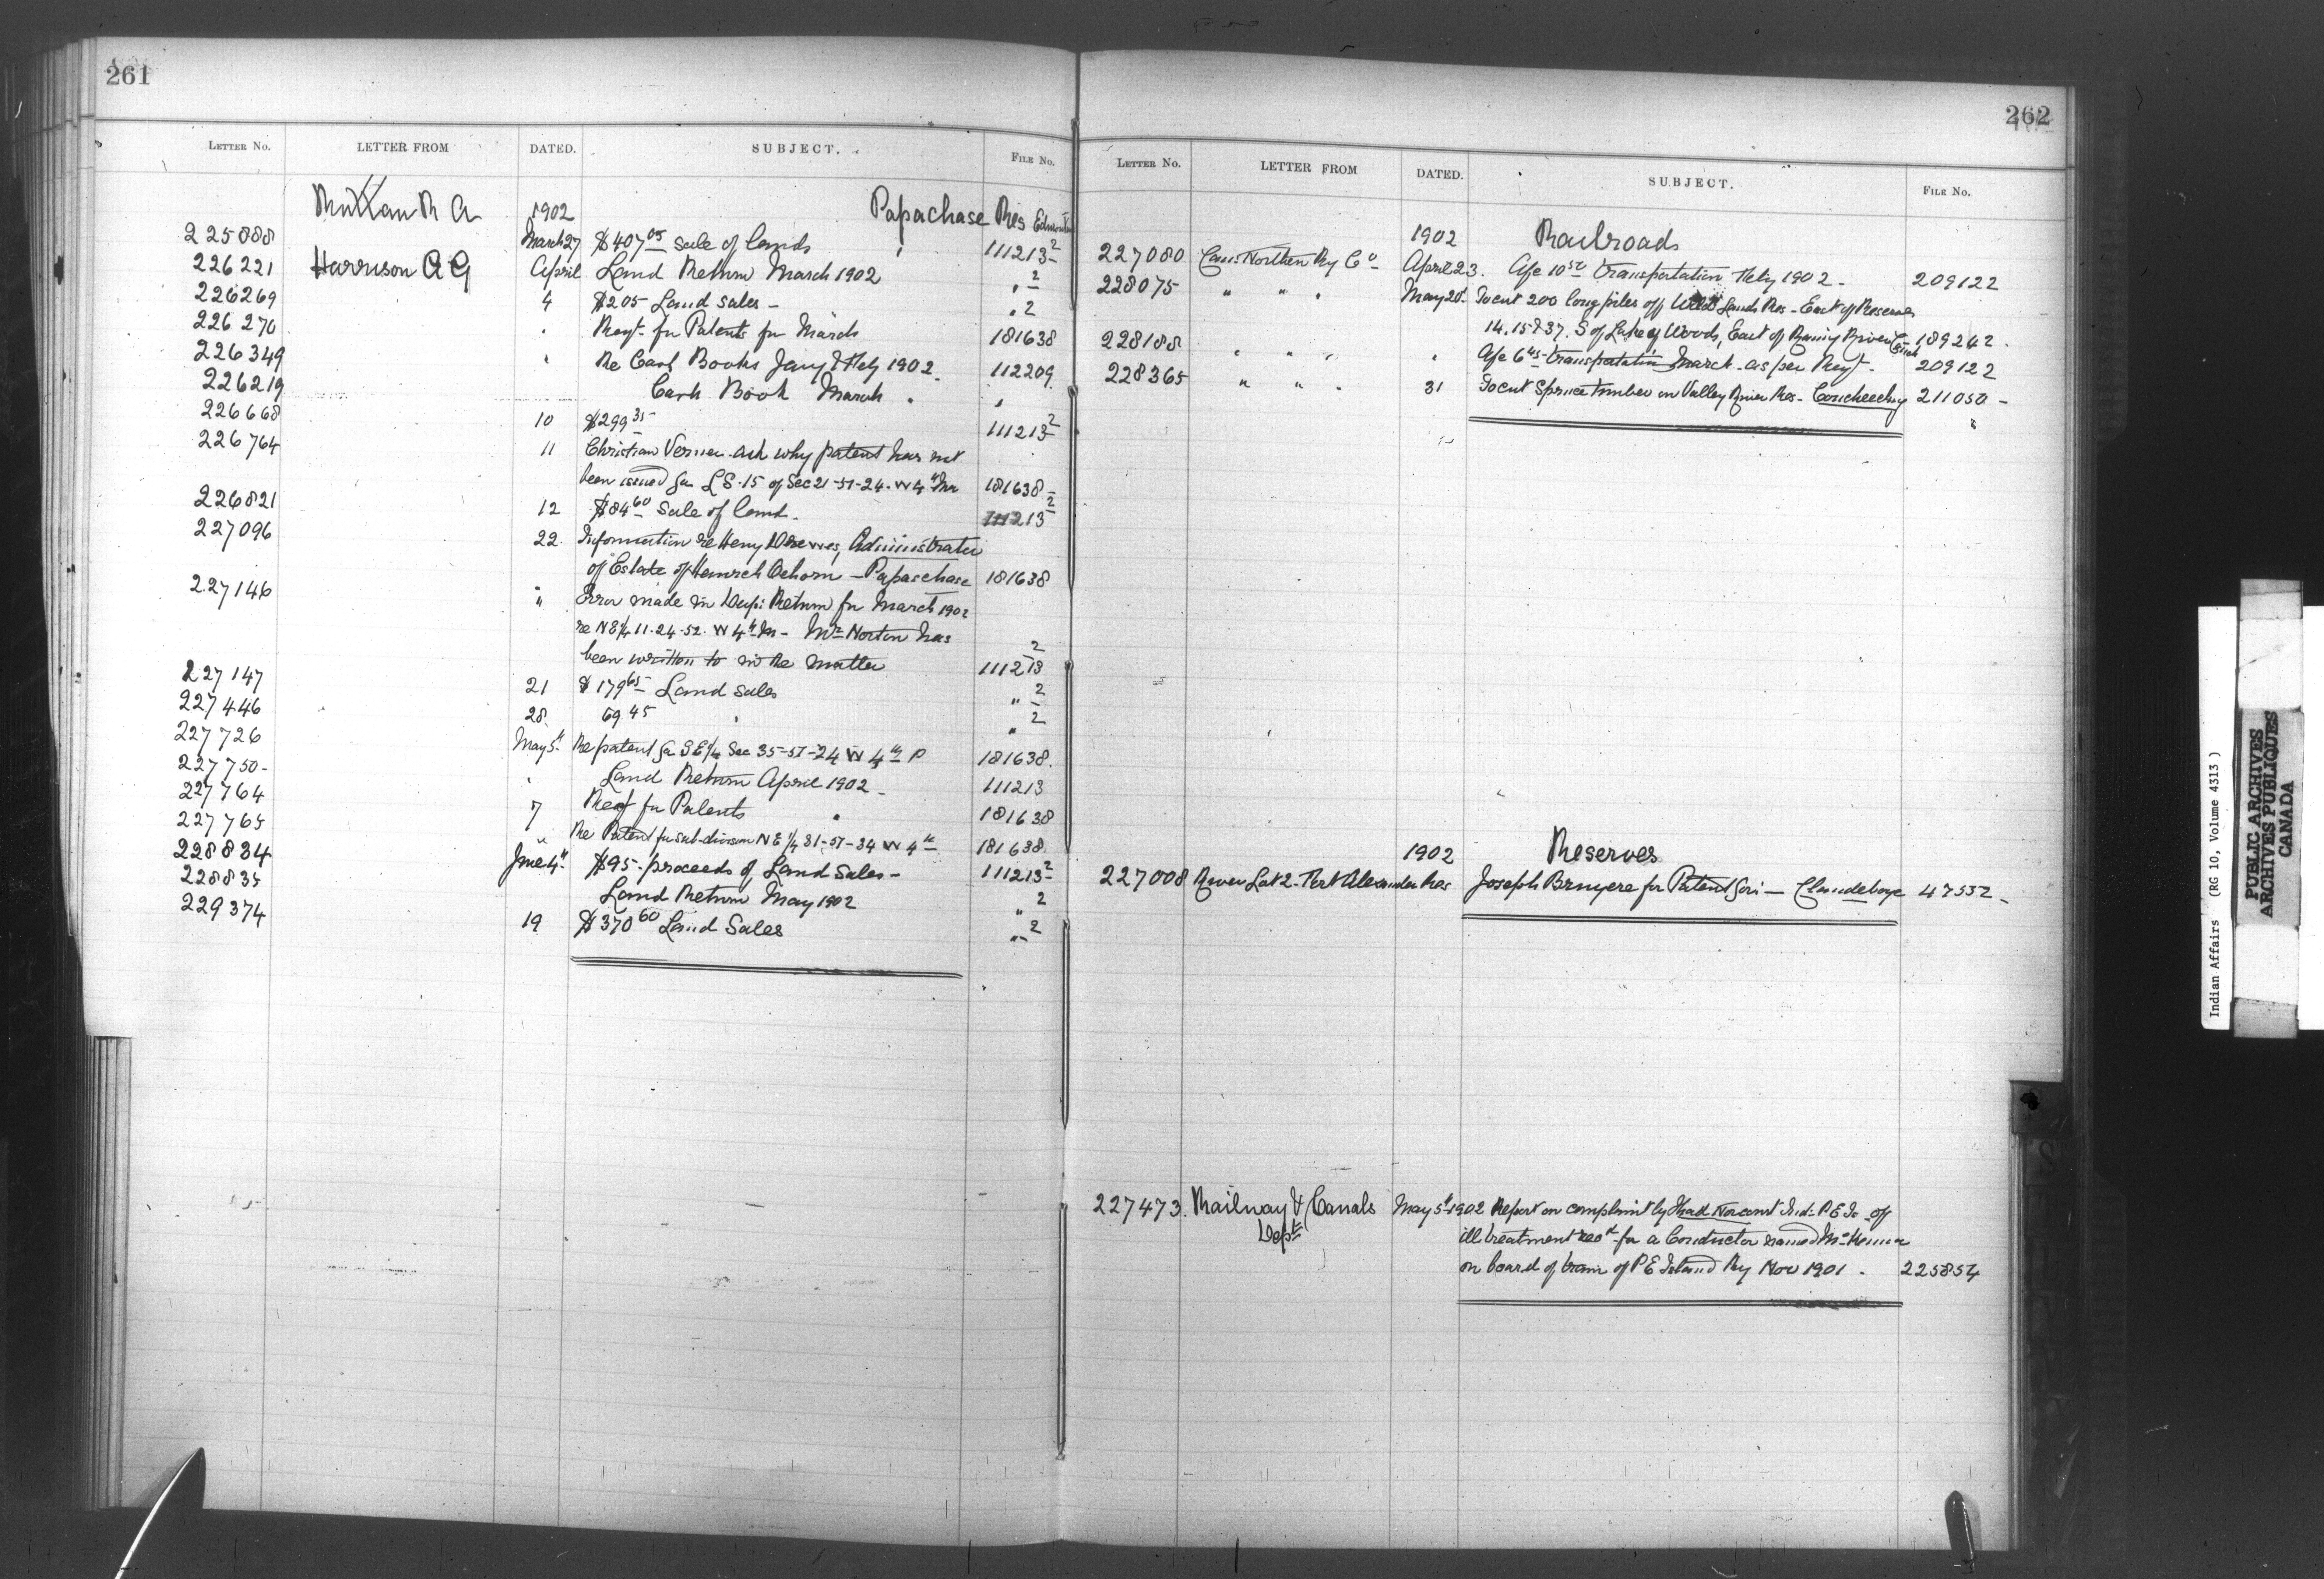 261
LETTER NO. LETTER FROM DATED. SUBJECT. FILE No.
Ruttan R A 1902 Papachase Res Edmonton
225888 March 27 $407 05 Sale of lands 111213 2
226221 Harrison A G April Land Return March 1902 " 2
226269 4 $205 Land Sales - " 2
226270 " Reqt. for Patents for March 181638
226349 " Re Cash Books Jany & Feby 1902 112209
226219 Cash Book March " "
226668 10 $299 35 111213 2
226764 11 Christian Verner ask why patent has not
been issued for LS. 15 of Sec 21-51-24. W 4th Mer 181638 -
226821 12 $84 60 Sale of land - 111213 2
227096 22. Information re Henry Drewes, Administrator
of Estate of Heinrich Oehorn - Papaschase 181638
227146 " Error made in Return for March 1902
re NE 1/4 11-24-52. W 4th M - Mr Norton has
been written to in the matter 111213 2
227147 21 $179 65 Land Sales " 2
227446 28 69 45 " " 2
227726 May 5th Re patent for SE 1/4 Sec 35-51-24 W 4th P 181638.
227750- " Land Return April 1902 - 111213
227764 7 Reqt for Patents " 181638
227765 " Re Patent for sub-division NE 1/4 31-51-24 W 4th 181638
228834 June 4th $95- proceeds of Land Sales - 111213 2
228835 Land Return May 1902 " 2
229374 19 $370 60 Land Sales " 2
262
LETTER NO. LETTER FROM DATED. SUBJECT. FILE No.
1902 Railroads
227080 Can. Northern Ry Co April 23. A/c 10 50 transportation Feby 1902 - 209122
228075 " " " May 20th To cut 200 long piles off Wild Lands Res - East of Reserves
14, 15 & 37. S of Lake of Woods, East of Rainy River 189242.
228188 " " " " A/c 6 45 transportation March - as per Reqt - 209122
228365 " " " 31 To cut Spruce timber on Valley River Res - Coucheeching 211050 -
1902 Reserves
227008 River Lot 2 - Fort Alexander Res Joseph Bruyere for Patent for - Clandeboye 47552 -
227473. Railway & Canals May 5th 1902 Report on complaint by Ind. P E Is - of
Dept ill treatment recd for a Conductor named
on board of train of P E Island Ry Nov 1901 - 225854
Indian Affairs (RG 10, Volume 4313 )
PUBLIC ARCHIVES
ARCHIVES PUBLIQUES
CANADA